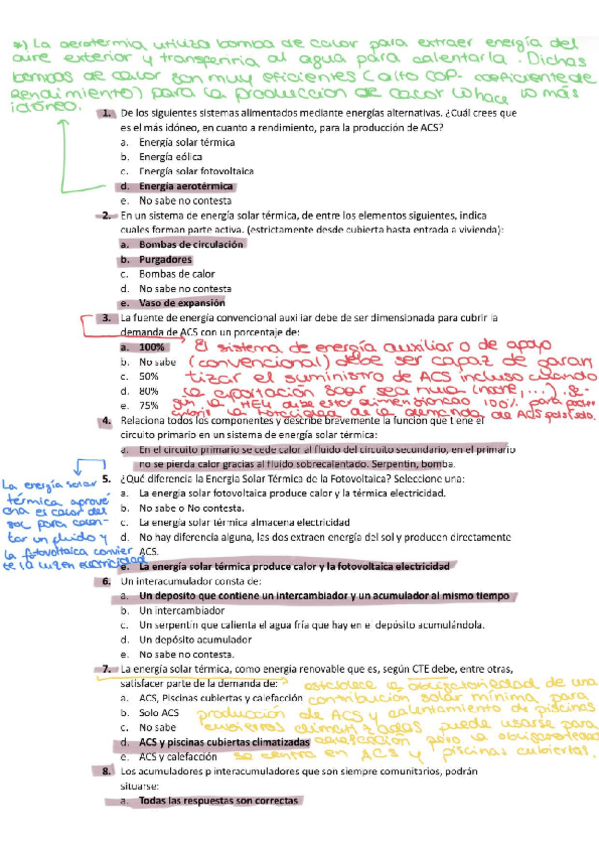 *) La aerotermia utiliza bomba de calor para extraer energía del
aire exterior y transferirla al agua para calentarla. Dichas
bombas de calor son muy eficientes (alto COP- coeficiente de
Rendimiento) para la producción de calor lo hace lo más
idóneo.
1. De los siguientes sistemas alimentados mediante energías alternativas. ¿Cuál crees que
es el más idóneo, en cuanto a rendimiento, para la producción de ACS?
a. Energía solar térmica
b. Energía eólica
c. Energía solar fotovoltaica
d. Energía aerotérmica
e. No sabe no contesta
2. En un sistema de energía solar térmica, de entre los elementos siguientes, indica
cuales forman parte activa. (estrictamente desde cubierta hasta entrada a vivienda):
a. Bombas de circulación
b. Purgadores
c. Bombas de calor
d. No sabe no contesta
e. Vaso de expansión
3. La fuente de energía convencional auxiliar debe de ser dimensionada para cubrir la
demanda de ACS con un porcentaje de:
a. 100%
b. No sabe
c. 50%
d. 80%
e. 75%
El sistema de energía auxiliar o de apoyo
(convencional) debe ser capaz de garan
tizar el suministro de ACS incluso cuando
la aportación solar sea nula (noche,...). Se-
gún la HE4 debe estar dimensionado 100% para poder
cubrir la totalidad de la demanda de ACS
4. Relaciona todos los componentes y describe brevemente la función que tiene el
circuito primario en un sistema de energía solar térmica:
a. En el circuito primario se cede calor al fluido del circuito secundario, en el primario
no se pierda calor gracias al fluido sobrecalentado. Serpentín, bomba.
5. ¿Qué diferencia la Energía Solar Térmica de la Fotovoltaica? Seleccione una:
a. La energía solar fotovoltaica produce calor y la térmica electricidad.
b. No sabe o No contesta.
c. La energía solar térmica almacena electricidad
d. No hay diferencia alguna, las dos extraen energía del sol y producen directamente
ACS.
e. La energía solar térmica produce calor y la fotovoltaica electricidad
La energía solar
térmica aprove
cha el calor del
sol para calen-
tar un fluido y
la fotovoltaica convier
te la luz en electricidad
6. Un interacumulador consta de:
a. Un deposito que contiene un intercambiador y un acumulador al mismo tiempo
b. Un intercambiador
c. Un serpentín que calienta el agua fría que hay en el depósito acumulándola.
d. Un depósito acumulador
e. No sabe no contesta.
7. La energía solar térmica, como energía renovable que es, según CTE debe, entre otras,
satisfacer parte de la demanda de:
a. ACS, Piscinas cubiertas y calefacción
b. Solo ACS
c. No sabe
d. ACS y piscinas cubiertas climatizadas
e. ACS y calefacción
establece la obligatoriedad de una
contribución solar mínima para
producción de ACS y calentamiento de piscinas
cubiertas climatizadas puede usarse para
calefacción pero la obligatoriedad
se centra en ACS y piscinas cubiertas.
8. Los acumuladores p interacumuladores que son siempre comunitarios, podrán
situarse:
a. Todas las respuestas son correctas